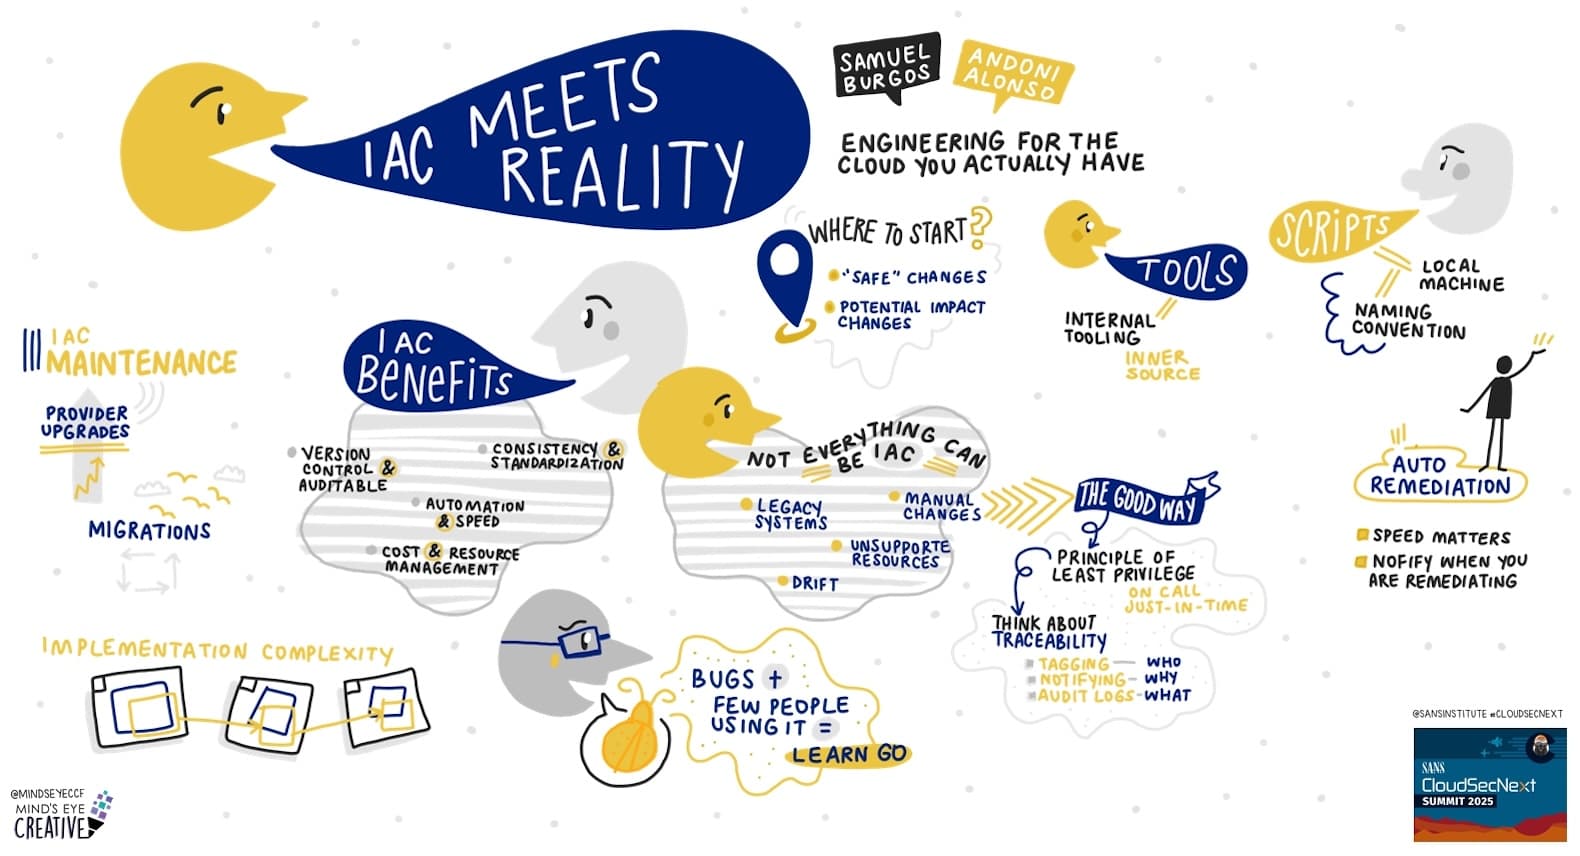 IAC MEETS
REALITY
SAMUEL
BURGOS
ANDONI
ALONSO
ENGINEERING FOR THE
CLOUD YOU ACTUALLY HAVE
WHERE TO START?
"SAFE" CHANGES
POTENTIAL IMPACT
CHANGES
TOOLS
INTERNAL
TOOLING
INNER
SOURCE
SCRIPTS
LOCAL
MACHINE
NAMING
CONVENTION
IAC
MAINTENANCE
PROVIDER
UPGRADES
MIGRATIONS
IAC
BENEFITS
VERSION
CONTROL &
AUDITABLE
CONSISTENCY &
STANDARDIZATION
AUTOMATION
& SPEED
COST & RESOURCE
MANAGEMENT
NOT EVERYTHING CAN
BE IAC
LEGACY
SYSTEMS
MANUAL
CHANGES
UNSUPPORTE
RESOURCES
DRIFT
THE GOOD WAY
PRINCIPLE OF
LEAST PRIVILEGE
ON CALL
JUST-IN-TIME
THINK ABOUT
TRACEABILITY
TAGGING — WHO
NOTIFYING - WHY
AUDIT LOGS - WHAT
AUTO
REMEDIATION
SPEED MATTERS
NOFIFY WHEN YOU
ARE REMEDIATING
IMPLEMENTATION COMPLEXITY
BUGS +
FEW PEOPLE
USING IT =
LEARN GO
@MINDSEYECCF
MIND'S EYE
CREATIVE
@SANSINSTITUTE #CLOUDSECNEXT
SANS
CloudSecNext
SUMMIT 2025